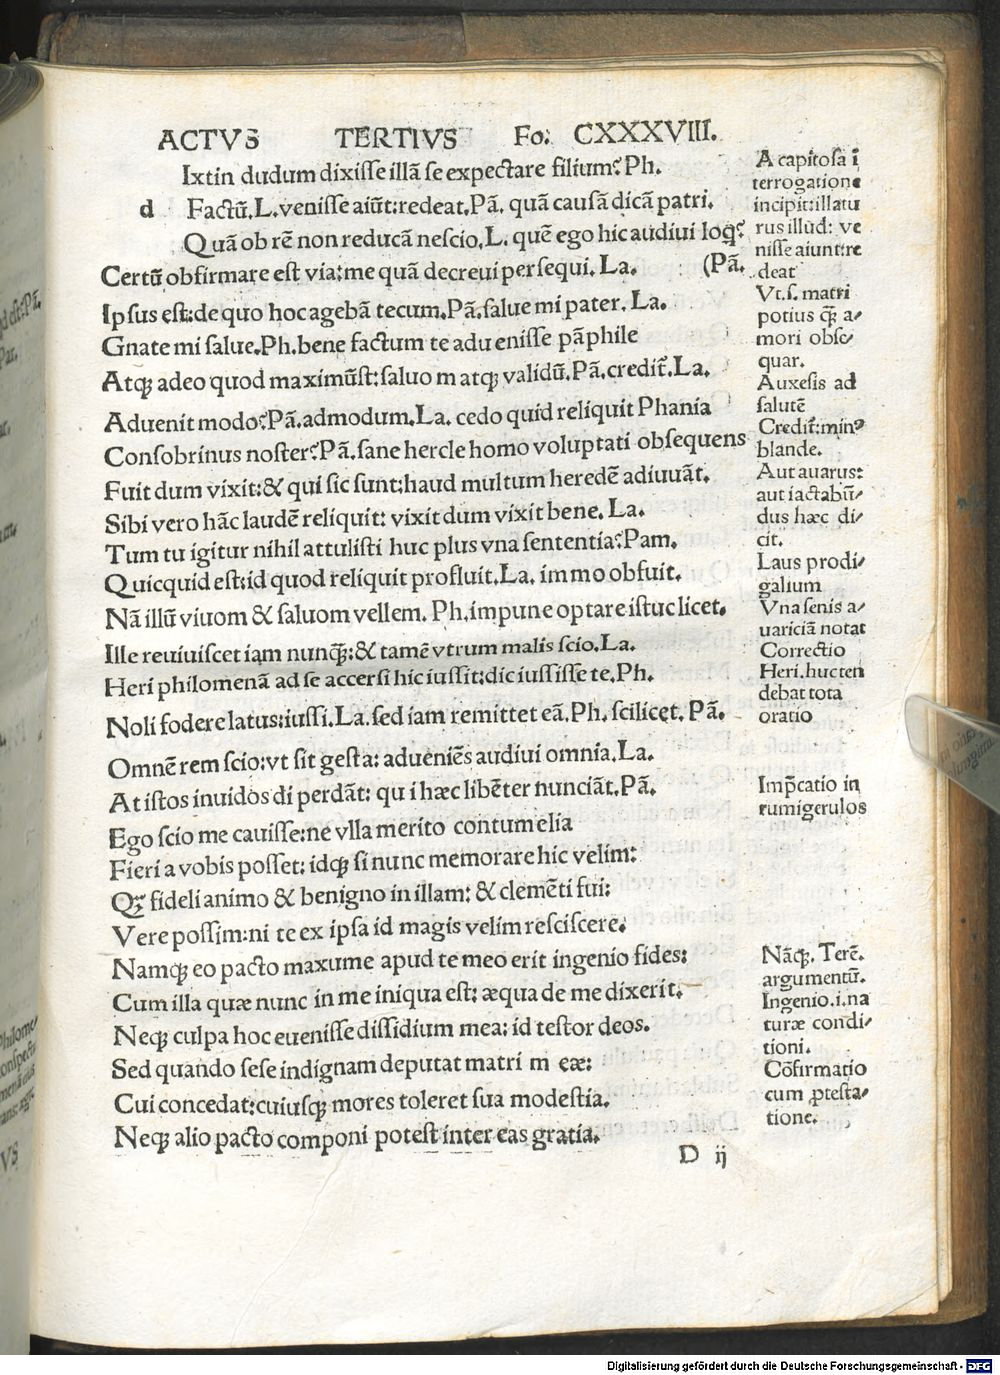 ACTVS TERTIVS Fo: CXXXVIII.
Ixtin dudum dixisse illã se expectare filium? Ph.
d Factũ. L. venisse aiũt: redeat. Pã. quã causã dicã patri.
Quã ob rẽ non reducã nescio. L. quẽ ego hic audiui loq?
Certũ obfirmare est via: me quã decreui persequi. La. (Pã.
Ipsus est: de quo hoc agebã tecum. Pã. salue mi pater. La.
Gnate mi salue. Ph. bene factum te aduenisse pãphile
Atq; adeo quod maximũst: saluom atq; validũ. Pã. credit̃. La.
Aduenit modo? Pã. admodum. La. cedo quid reliquit Phania
Consobrinus noster? Pã. sane hercle homo voluptati obsequens
Fuit dum vixit: & qui sic sunt: haud multum heredẽ adiuuãt.
Sibi vero hãc laudẽ reliquit: vixit dum vixit bene. La.
Tum tu igitur nihil attulisti huc plus vna sententia? Pam.
Quicquid est: id quod reliquit profluit. La. immo obfuit.
Nã illũ viuom & saluom vellem. Ph. impune optare istuc licet.
Ille reuiuiscet iam nunq̃: & tamẽ vtrum malis scio. La.
Heri philomenã ad se accersi hic iussit: dic iussisse te. Ph.
Noli fodere latus: iussi. La. sed iam remittet eã. Ph. scilicet. Pã.
Omnẽ rem scio: vt sit gesta: adueniẽs audiui omnia. La.
At istos inuidos di perdãt: qui hæc libẽter nunciãt. Pã.
Ego scio me cauisse: ne vlla merito contumelia
Fieri a vobis posset: idq; si nunc memorare hic velim:
Qꝫ fideli animo & benigno in illam: & clemẽti fui:
Vere possim: ni te ex ipsa id magis velim resciscere.
Namq; eo pacto maxume apud te meo erit ingenio fides:
Cum illa quæ nunc in me iniqua est: æqua de me dixerit.
Neq; culpa hoc euenisse dissidium mea: id testor deos.
Sed quando sese indignam deputat matri meæ:
Cui concedat: cuiusq; mores toleret sua modestia.
Neq; alio pacto componi potest inter eas gratia.
D ij
A capitosa ĩ
terrogatione
incipit: illatu
rus illud: ve
nisse aiunt: re
deat
Vt. s. matri
potius q̃; a/
mori obse/
quar.
Auxesis ad
salutẽ
Credit̃: min?
blande.
Aut auarus:
aut iactabũ/
dus hæc di/
cit.
Laus prodi/
galium
Vna senis a/
uariciã notat
Correctio
Heri. huc ten
debat tota
oratio
Imp̃catio in
rumigerulos
Nãq;. Terẽ.
argumentũ.
Ingenio. i. na
turæ condi/
tioni.
Cõfirmatio
cum ꝓtesta/
tione.
Digitalisierung gefördert durch die Deutsche Forschungsgemeinschaft - DFG